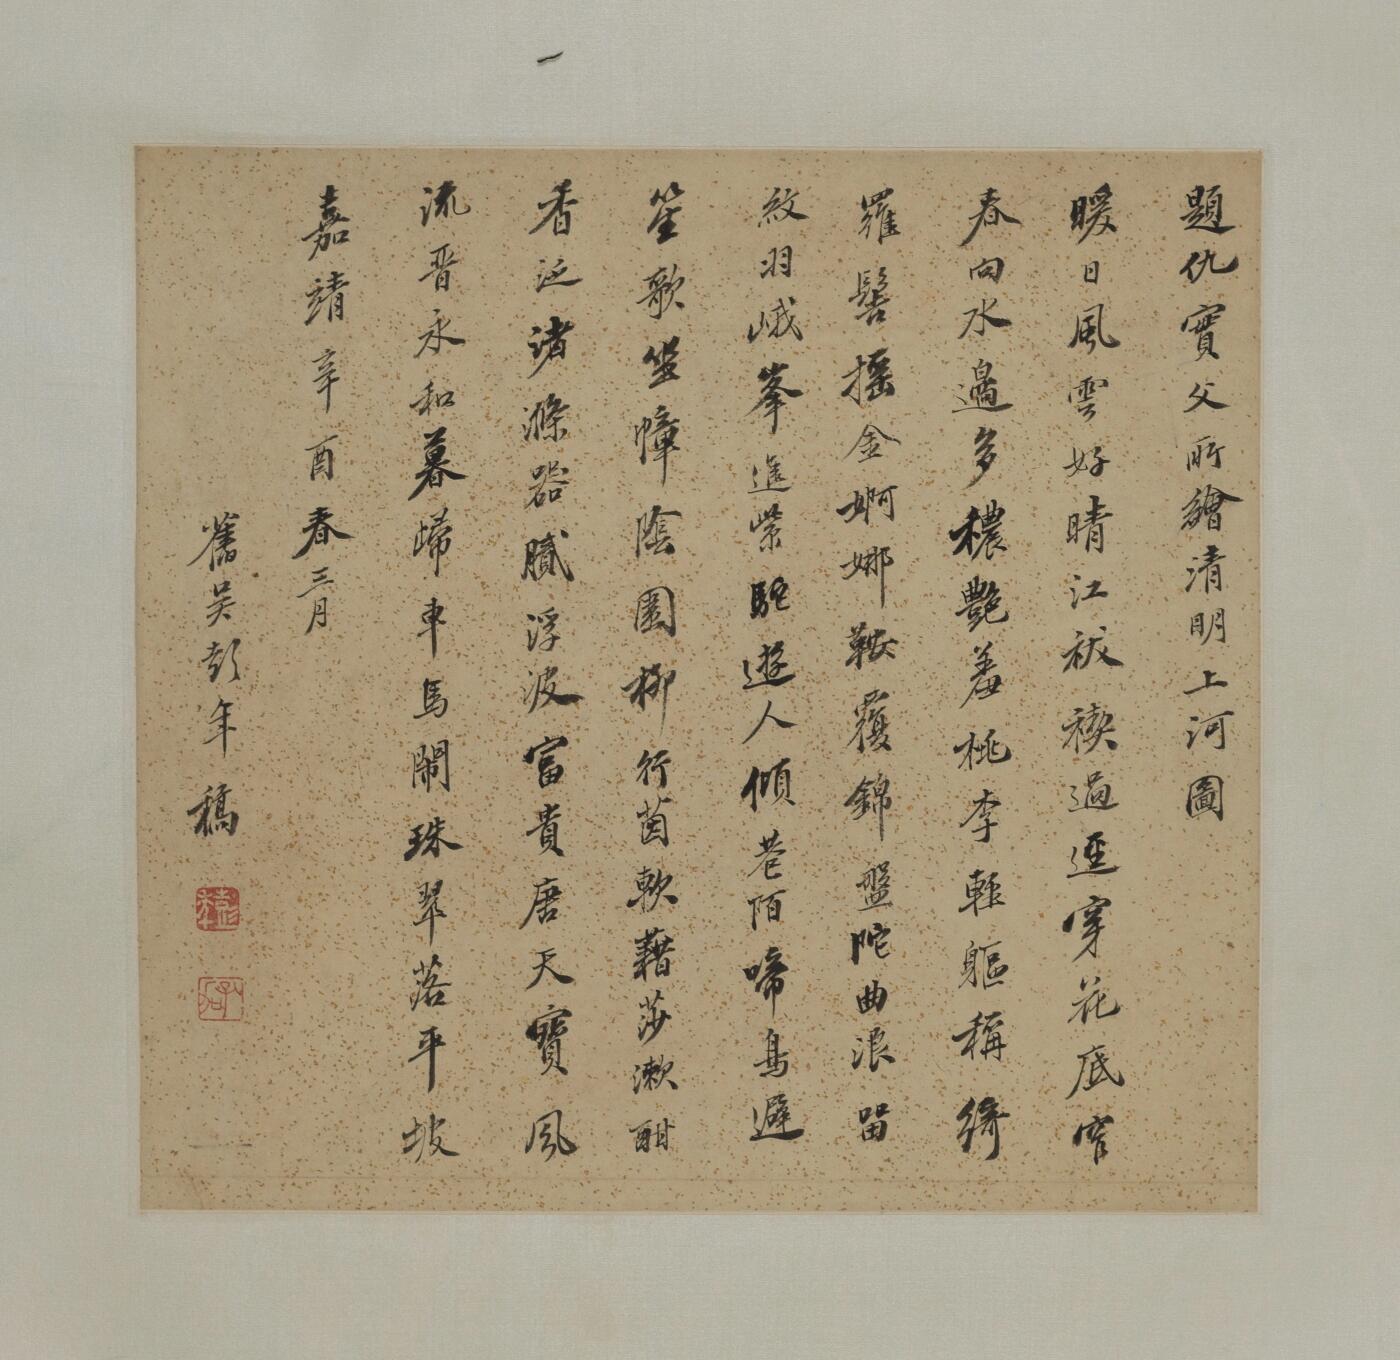 題仇實父所繪清明上河圖
暖日風雲好晴江袚禊過逕穿花底窄
春向水邊多穠艷羞桃李輕軀稱綺
羅髻搖金婀娜鞍覆錦盤陀曲浪留
紋羽峨峯進紫駝遊人傾巷陌啼鳥避
笙歌坐幛陰園柳行茵軟藉莎漱酣
香泛渚滌器膩浮波富貴唐天寶風
流晉永和暮歸車馬鬧珠翠落平坡
嘉靖辛酉春三月
舊吳彭年稿